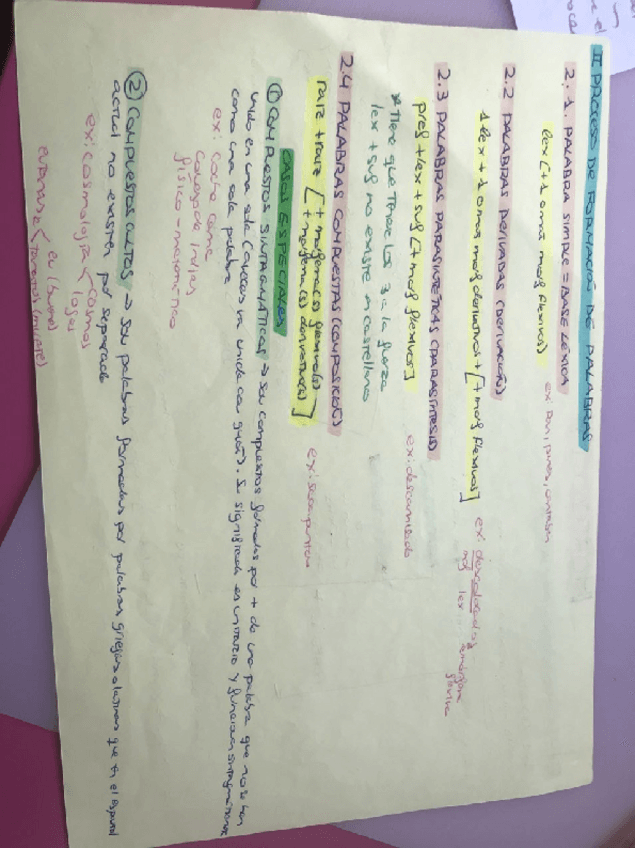 II PROCESO DE FORMACIÓN DE PALABRAS
2.1. PALABRA SIMPLE = BASE LÉXICA
lex [+ 1 o más morf flexivos] ex: pan, panes,
2.2 PALABRAS DERIVADAS (DERIVACIÓN)
1 lex + 1 o más morf derivativos + [+ morf flexivos] ex:
lex
2.3 PALABRAS PARASINTÉTICAS (PARASÍNTESIS)
pref + lex + suf [+ morf flexivos] ex: descamisado
* Tiene que tener los 3 a la fuerza
lex + suf no existe en castellano
2.4 PALABRAS COMPUESTAS (COMPOSICIÓN)
raíz + raíz [+ morfema(s) flexivo(s)
+ morfema(s) derivativo(s)] ex: sacapuntas
CASOS ESPECIALES
① COMPUESTOS SINTAGMÁTICOS → Son compuestos formados por + de una palabra que no se han
unido en una sola (a veces va unida con guión). Su significado es unitario y funcionan sintagmáticamente
como una sola palabra
ex: coche cama
conejo de indias
físico-matemático
② COMPUESTOS CULTOS → Son palabras formadas por palabras griegas o latinas que en el español
actual no existen por separado
ex: cosmología < cosmos
logos
eutanasia < eu (bueno)
tanatos (muerte)